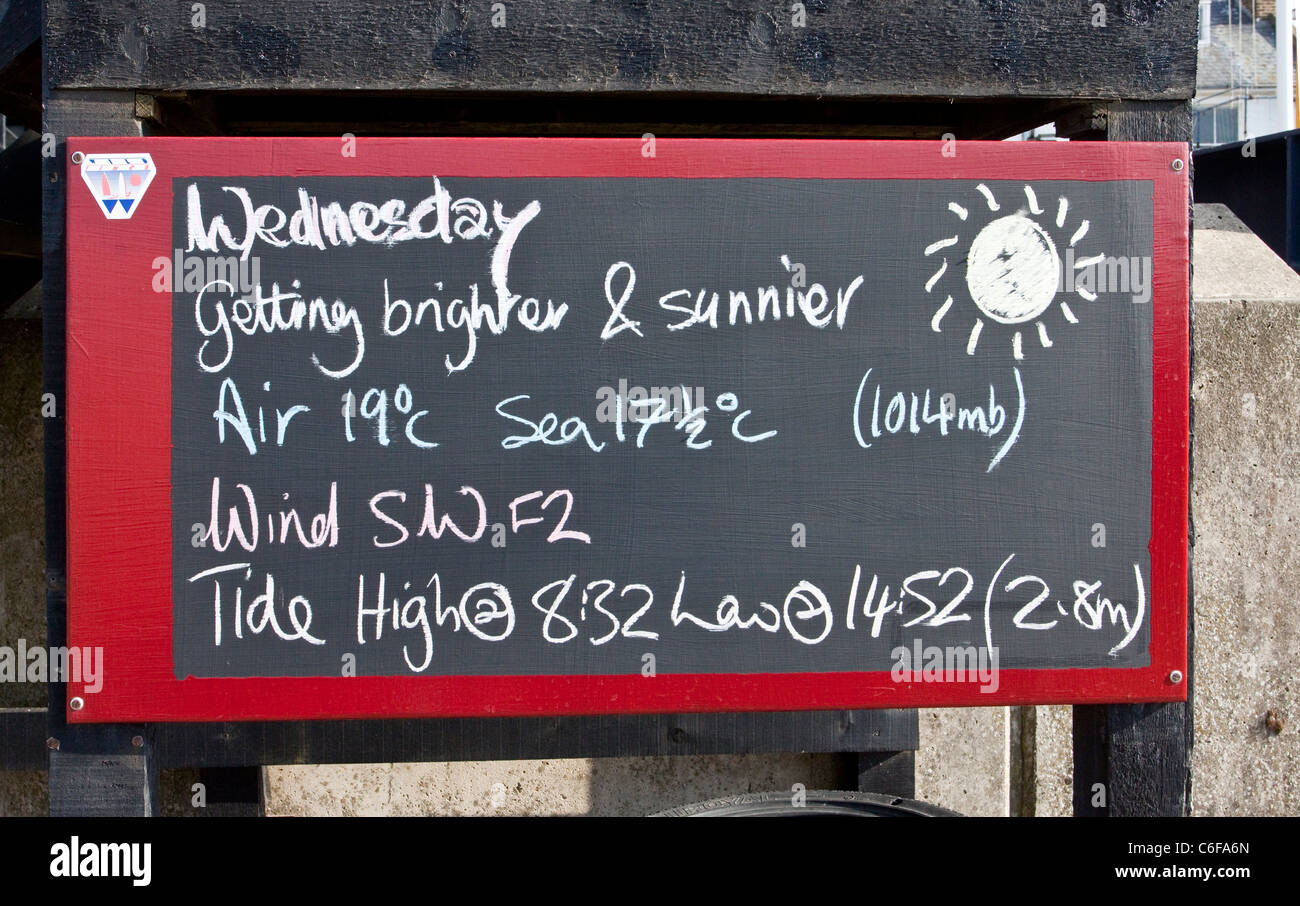 Wednesday
Getting brighter & sunnier
Air 19°c Sea 17½°c (1014mb)
Wind SW F2
Tide High@ 8:32 Low@ 14:52 (2.8m)
alamy
Image ID: C6FA6N
www.alamy.com